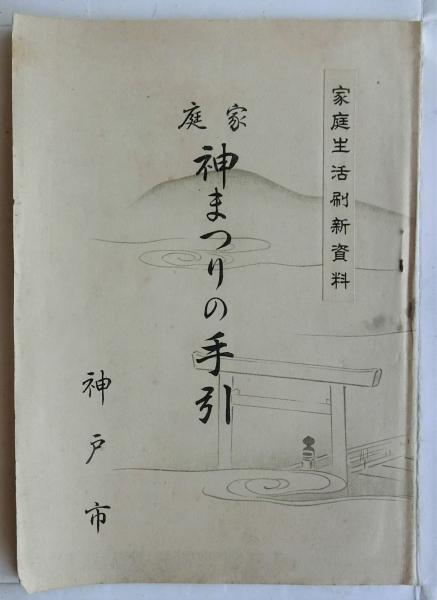 家庭生活刷新資料
家庭
神まつりの手引
神戸市